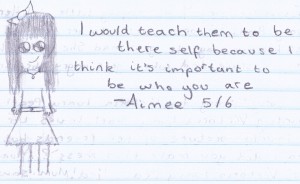 I would teach them to be
there self because I
think it's important to
be who you are
-Aimee 5/6